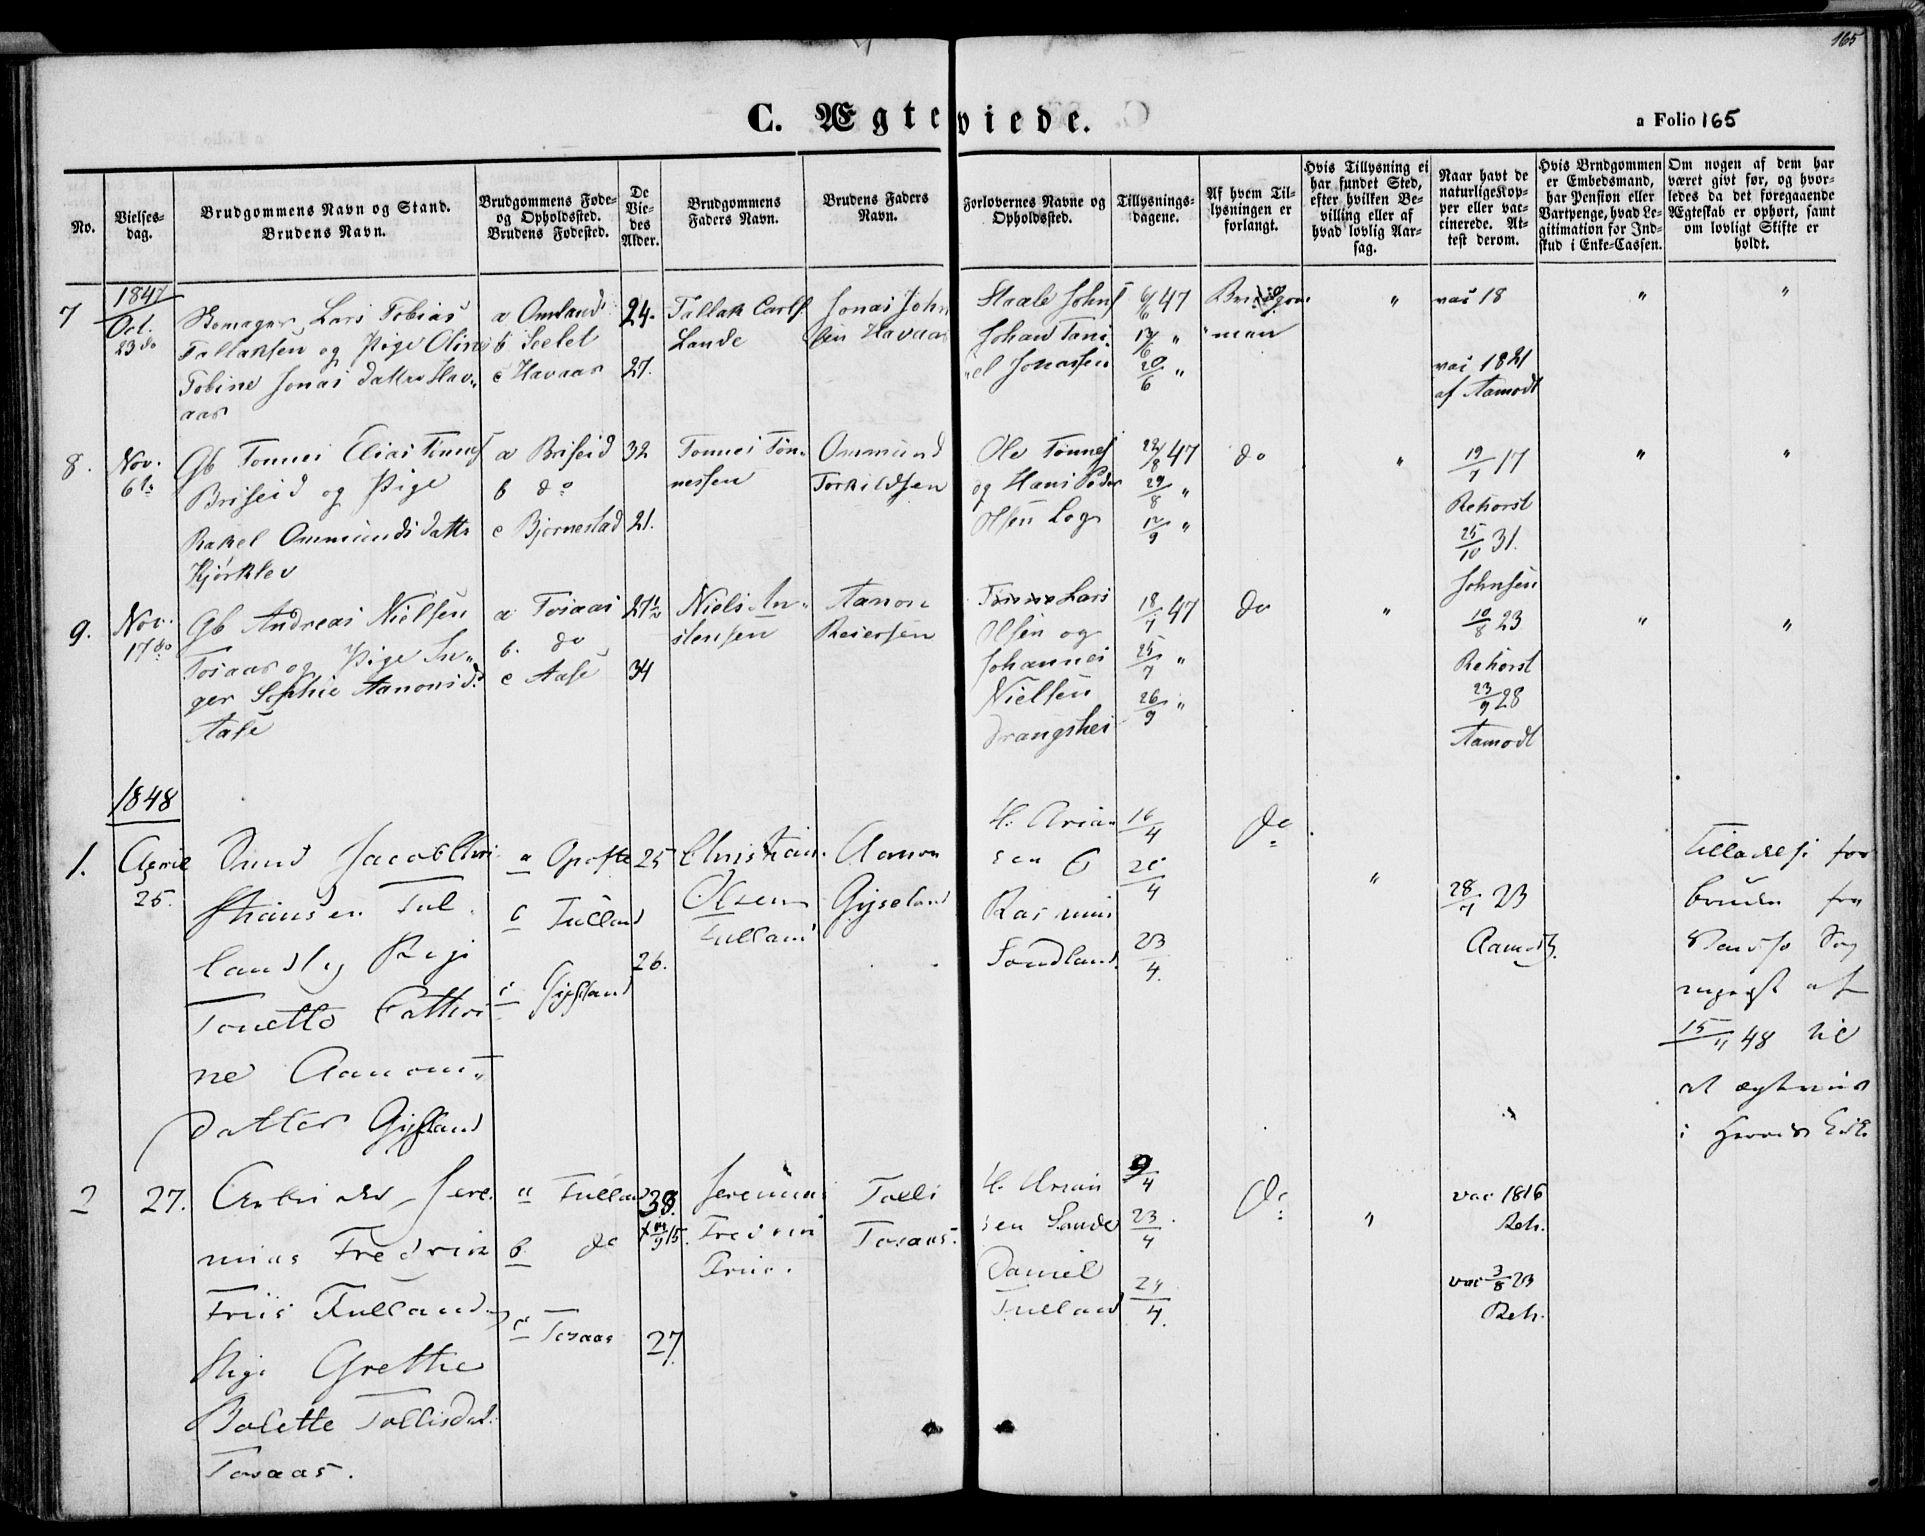 165
C. Ægteviede.
a Folio 165
No.
Vielses-
dag.
Brudgommens Navn og Stand.
Brudens Navn.
Brudgommens Føde-
og Opholdssted.
Brudens Fødested.
De
Vie-
des
Alder.
Brudgommens
Faders Navn.
Brudens Faders
Navn.
Forlovernes Navne og
Opholdssted.
Tillysnings-
dagene.
Af hvem Til-
lysningen er
forlangt.
Hvis Tillysning ei
har fundet Sted,
efter hvilken Be-
villing eller af
hvad lovlig Aar-
sag.
Naar havt de
naturlige Kop-
per eller vac-
cinerede. At-
test derom.
Hvis Brudgommen
er Embedsmand,
har Pension eller
Vartpenge, hvad Le-
gitimation for Ind-
skud i Enke-Cassen.
Om nogen af dem har
været givt før, og hvor-
ledes da det foregaaende
Ægteskab er ophørt, samt
om lovligt Skifte er
holdt.
7
1847
Oct.
23 do
Lars Tobias
Tallaksen og Pige Oline
Tobine Jonas datter Hav-
aas
a Omland
b Seelet
c Havaas
24.
27.
Tallak Carls
Lande
Jonas John
sen Havaas
Staale Johns
Johan Tani
el Jonassen
6/6 47
13/6 "
20/6 "
Brudgom
man
"
vac 18
vac 1821
af Aamodt
"
"
8.
Nov.
6te
Gb Tønnes Elias Tønnes
Briseid og Pige
Rakel Ommunds datter
Kjørklev
a Briseid
b do
c Bjørnestad
32
21.
Tønnes Tøn-
nessen
Ommund
Torkildsen
Ole Tønnes
og Hans Peder
Olsen Log
22/8 47
29/8 "
12/9 "
do
"
19/7 17
Rehorst
25/10 31.
Johnsen
"
"
9.
Nov.
17 do
Gb Andreas Nielsen
Tosaas og Pige In-
ger Sophie Aanons d.
Aase
a Tosaas
b. do
c Aase
27½
34
Niels An-
stensen
Aanon
Reiersen
Lars
Olsen og
Johannes
Nielsen
Drangshei
18/7 47
25/7 "
26/9 "
do
"
10/8 23
Rehorst
23/9 28
Aamodt
"
"
1848
1.
April
25.
Jacob Chri
stiansen Ful
land og Pige
Tonette Cathri
ne Aanons
datter Gysland
a Opofte
b Fulland
c Gysland
25
26.
Christian
Olsen
Fulland
Aanon
Gyseland
H. Arian
sen
Rasmus
Sondland
16/4
20/4
23/4.
do
"
28/7 23
Aamodt.
Tilladelse for
bruden fra
af
15/4 48 til
at
i
2
27.
Jere
mias Fredrik
Friis Fulland
Pige Grethe
Bolette Tollisdat.
Tosaas.
a Fulland
b do
c Tosaas
38.
27.
Jeremias
Fredrik
Friis.
Tolli
Tosaas.
H. Arian
sen Lande
Daniel
Fulland
9/4
23/4
24/4.
do
"
vac 1816
Reh.
vac 3/8 23
Reh.